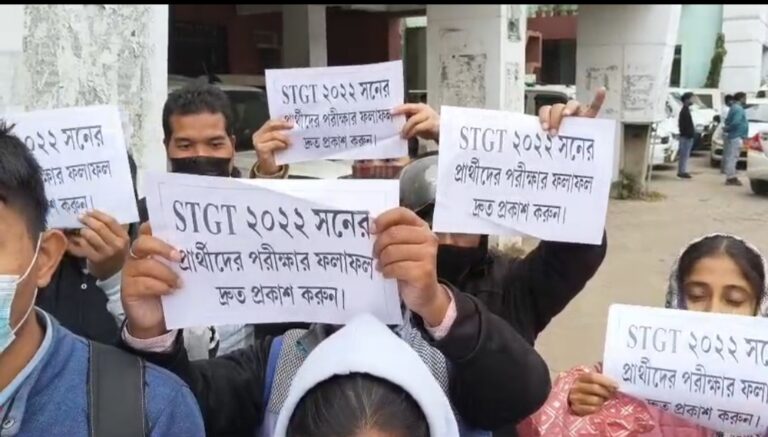 ২০২২ সনের
র পরীক্ষার ফলাফল
প্রকাশ করুন।
STGT ২০২২ সনের
প্রার্থীদের পরীক্ষার ফলাফল
দ্রুত প্রকাশ করুন।
STGT ২০২২ সনের
প্রার্থীদের পরীক্ষার ফলাফল
দ্রুত প্রকাশ করুন।
STGT ২০২২ সনের
প্রার্থীদের পরীক্ষার ফলাফল
দ্রুত প্রকাশ করুন।
STGT ২০২২ সনের
প্রার্থীদের পরীক্ষার ফলা
দ্রুত প্রকাশ করুন।